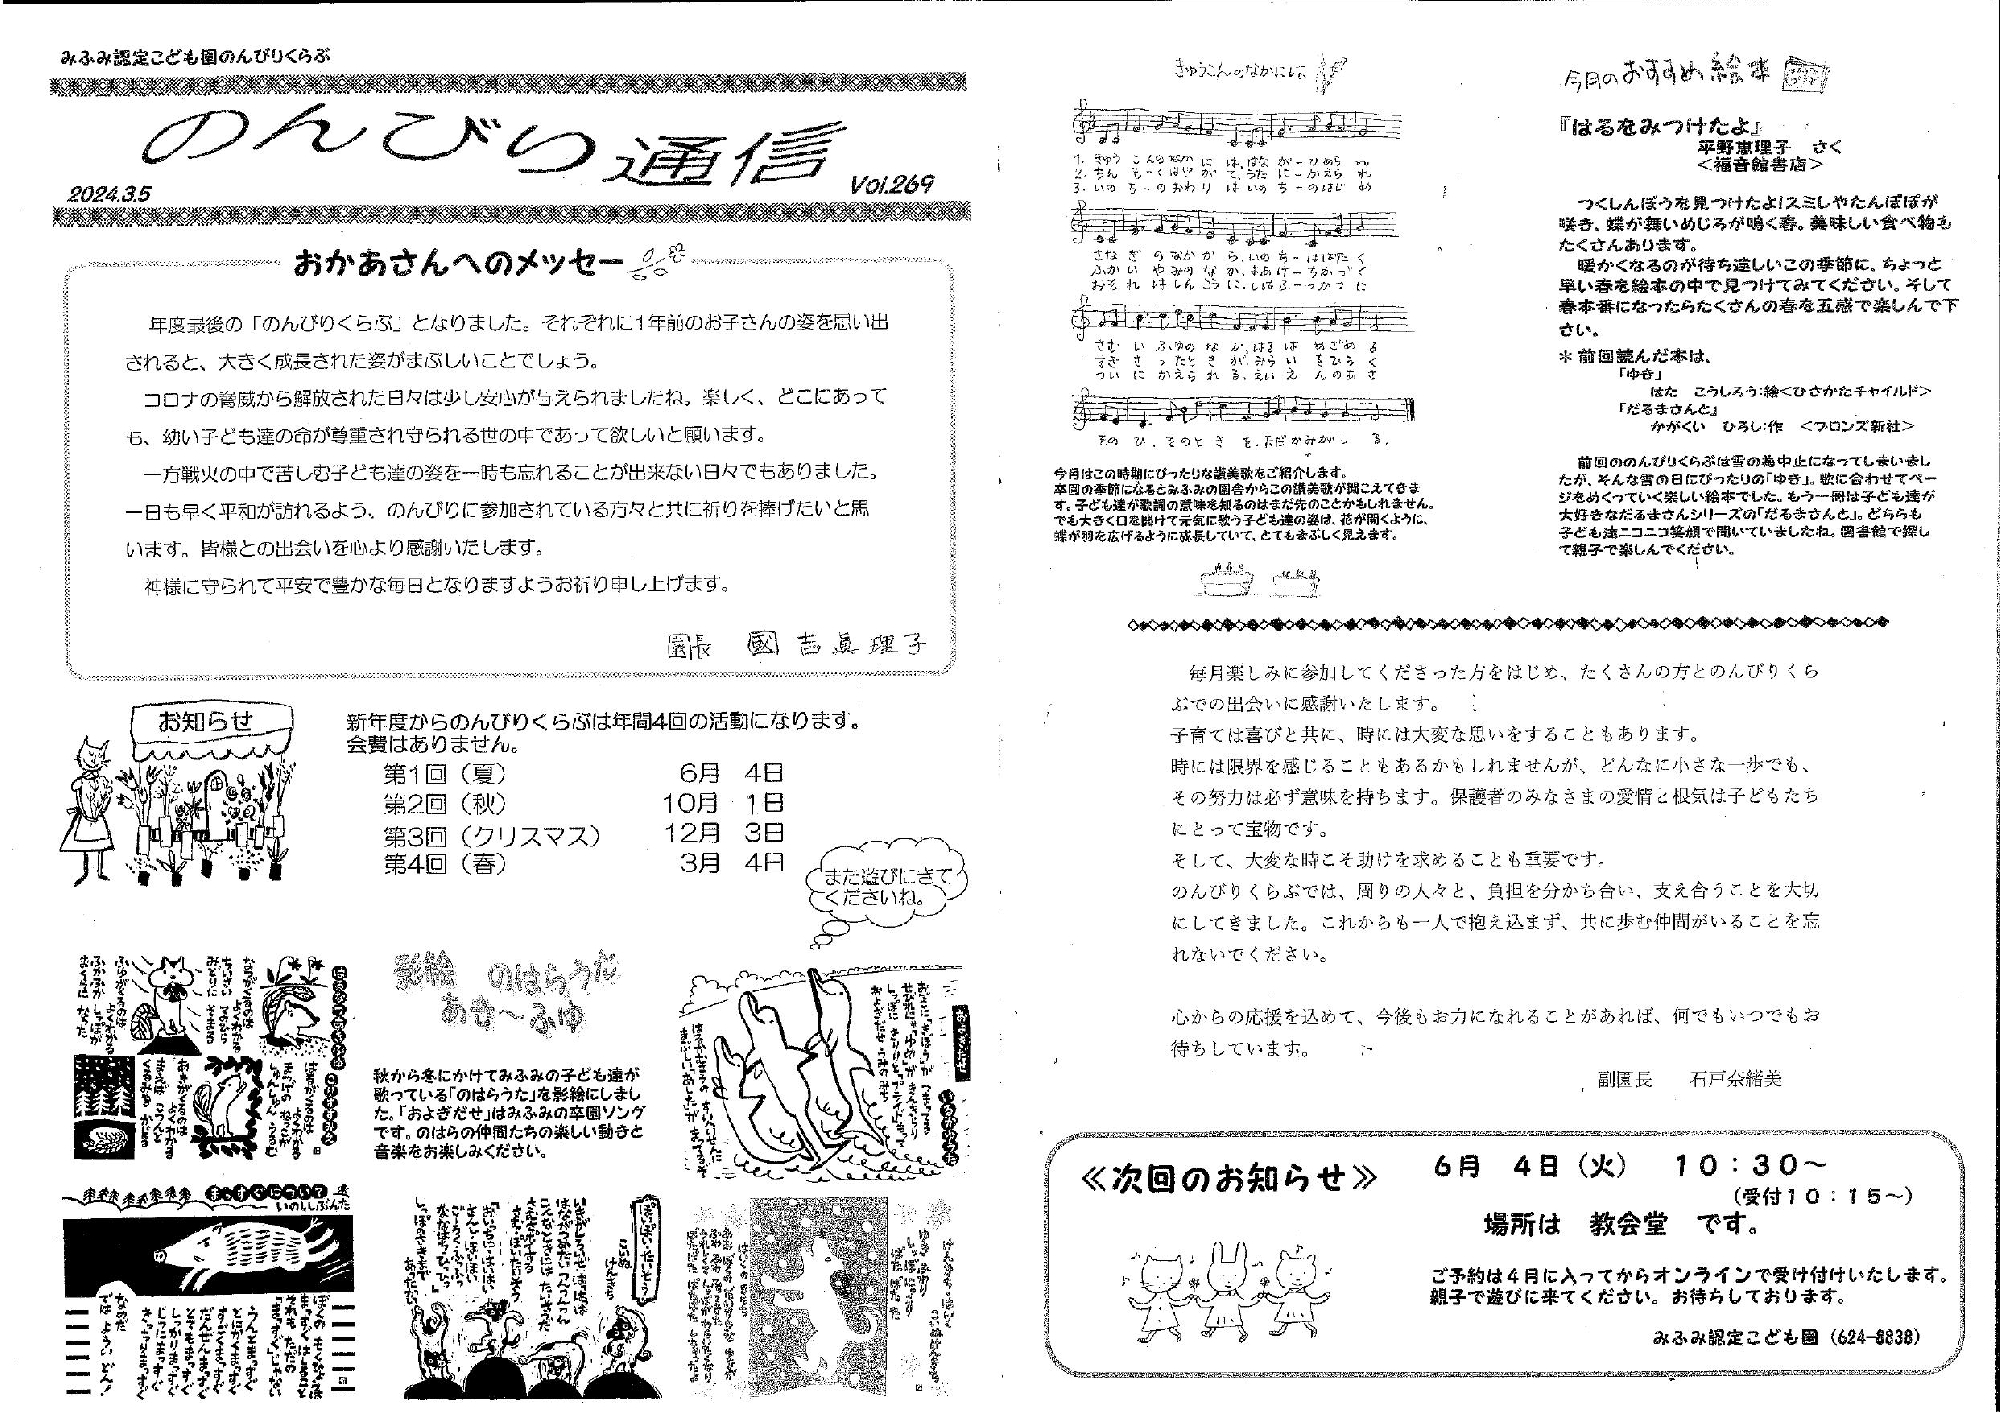 みふみ認定こども園のんびりくらぶ
のんびり通信
2024.3.5
Vol.269
おかあさんへのメッセー
年度最後の「のんびりくらぶ」となりました。それぞれに1年前のお子さんの姿を思い出
されると、大きく成長された姿がまぶしいことでしょう。
コロナの脅威から解放された日々は少し安心が与えられましたね。楽しく、どこにあって
も、幼い子ども達の命が尊重され守られる世の中であって欲しいと願います。
一方戦火の中で苦しむ子ども達の姿を一時も忘れることが出来ない日々でもありました。
一日も早く平和が訪れるよう、のんびりに参加されている方々と共に祈りを捧げたいと思
います。皆様との出会いを心より感謝いたします。
神様に守られて平安で豊かな毎日となりますようお祈り申し上げます。
園長 國吉眞理子
お知らせ
新年度からのんびりくらぶは年間4回の活動になります。
会費はありません。
第1回（夏） 6月 4日
第2回（秋） 10月 1日
第3回（クリスマス） 12月 3日
第4回（春） 3月 4日
また遊びにきて
くださいね。
影絵 のはらうた
あき～ふゆ
秋から冬にかけてみふみの子ども達が
歌っている「のはらうた」を影絵にしまし
た。「およぎだせ」はみふみの卒園ソング
です。のはらの仲間たちの楽しい動きと
音楽をお楽しみください。
まっすぐについて
いのししぶんた
きゅうこんのなかには
1. きゅう こんの なか に は、はな が ー ひめら れ
2. ちん も ー くは や が て、うた に ー かえら れ
3. いの ち ー の おわ り は いの ち ー の はじ め
さな ぎ の なか か ら、いの ち ー はばた く
ふか い やみの な か、よあ け ー ちかづ く
おそ れ は しん こう に、し は ふ ー っかつ に
さむ い ふゆ の な か、はる は めざめ る
すぎ さ った と き が、みら い をひら く
つい に かえら れ る、えい え んの あ さ
その ひ、その と き を、ただ かみが し る。
今月はこの時期にぴったりな讃美歌をご紹介します。
卒園の季節になるとみふみの園舎からこの讃美歌が聞こえてきま
す。子ども達が歌詞の意味を知るのはまだ先のことかもしれません。
でも大きく口を開けて元気に歌う子ども達の姿は、花が開くように、
蝶が羽を広げるように成長していて、とてもまぶしく見えます。
今月のおすすめ絵本
『はるをみつけたよ』
平野恵理子 さく
＜福音館書店＞
つくしんぼうを見つけたよ！スミレやたんぽぽが
咲き、蝶が舞いめじろが鳴く春。美味しい食べ物も
たくさんあります。
暖かくなるのが待ち遠しいこの季節に、ちょっと
早い春を絵本の中で見つけてみてください。そして
春本番になったらたくさんの春を五感で楽しんで下
さい。
＊前回読んだ本は、
「ゆき」
はた こうしろう:絵＜ひさかたチャイルド＞
「だるまさんと」
かがくい ひろし:作 ＜ブロンズ新社＞
前回ののんびりくらぶは雪の為中止になってしまいまし
たが、そんな雪の日にぴったりの「ゆき」。歌に合わせてペー
ジをめくっていく楽しい絵本でした。もう一冊は子ども達が
大好きなだるまさんシリーズの「だるまさんと」。どちらも
子ども達ニコニコ笑顔で聞いていましたね。図書館で探し
て親子で楽しんでください。
毎月楽しみに参加してくださった方をはじめ、たくさんの方とのんびりくら
ぶでの出会いに感謝いたします。
子育ては喜びと共に、時には大変な思いをすることもあります。
時には限界を感じることもあるかもしれませんが、どんなに小さな一歩でも、
その努力は必ず意味を持ちます。保護者のみなさまの愛情と根気は子どもたち
にとって宝物です。
そして、大変な時こそ助けを求めることも重要です。
のんびりくらぶでは、周りの人々と、負担を分かち合い、支え合うことを大切
にしてきました。これからも一人で抱え込まず、共に歩む仲間がいることを忘
れないでください。
心からの応援を込めて、今後もお力になれることがあれば、何でもいつでもお
待ちしています。
副園長 石戸奈緒美
≪次回のお知らせ≫
6月 4日（火） 10：30～
（受付10：15～）
場所は 教会堂 です。
ご予約は4月に入ってからオンラインで受け付けいたします。
親子で遊びに来てください。お待ちしております。
みふみ認定こども園（624-8838）